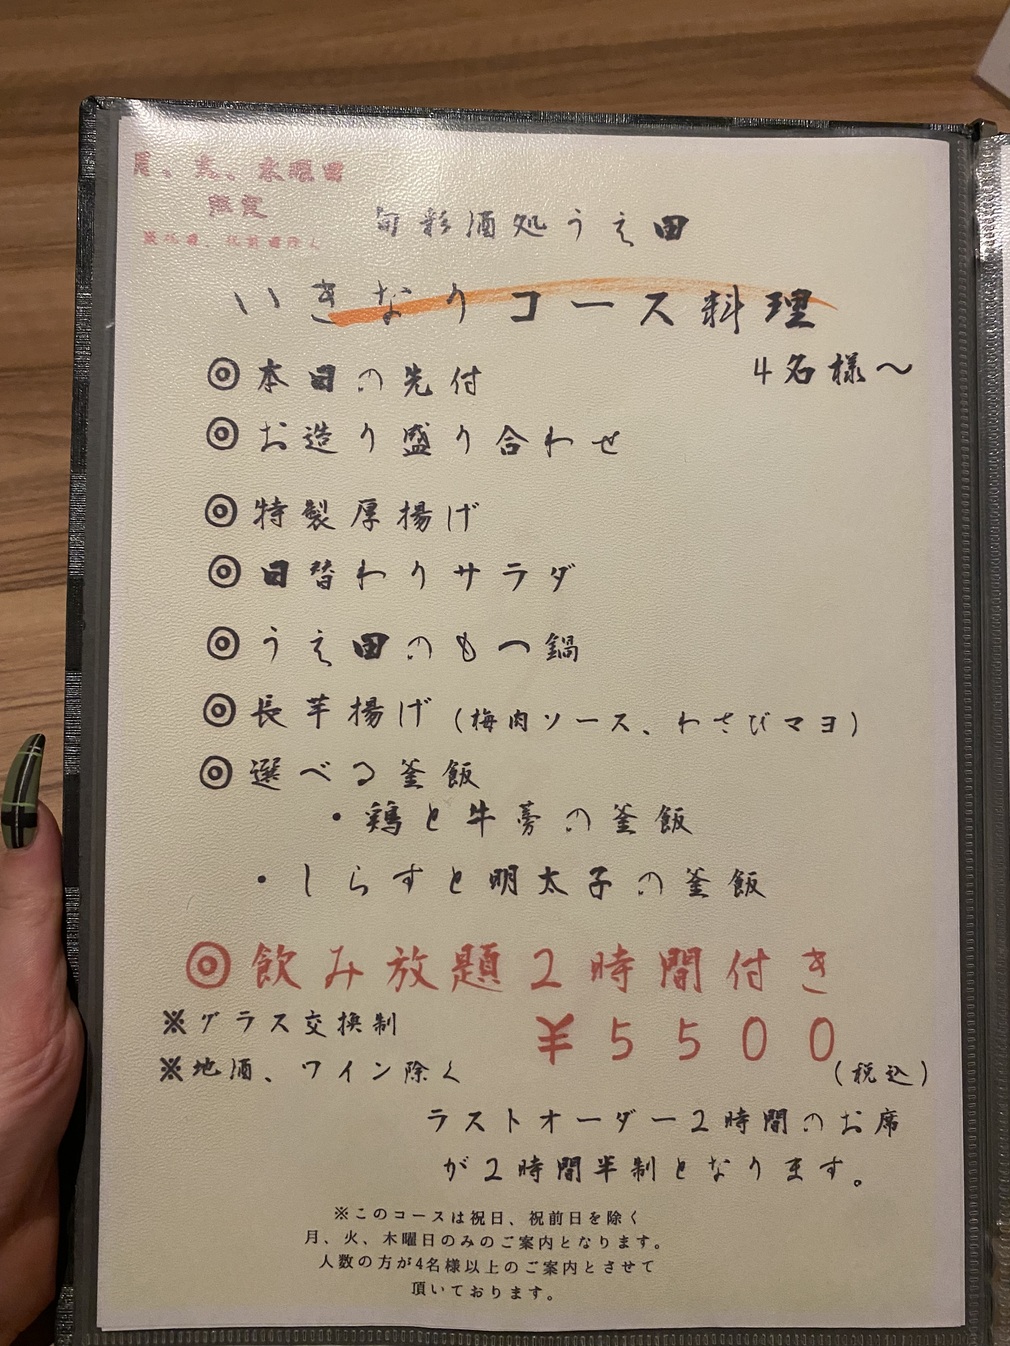 月、火、木曜日
限定
※祝日、祝前日除く
旬彩酒処うえ田
いきなりコース料理
4名様～
◎本日の先付
◎お造り盛り合わせ
◎特製厚揚げ
◎日替わりサラダ
◎うえ田のもつ鍋
◎長芋揚げ(梅肉ソース、わさびマヨ)
◎選べる釜飯
・鶏と牛蒡の釜飯
・しらすと明太子の釜飯
◎飲み放題2時間付き
※グラス交換制
¥5500
※地酒、ワイン除く
(税込)
ラストオーダー2時間のお席
が2時間半制となります。
※このコースは祝日、祝前日を除く
月、火、木曜日のみのご案内となります。
人数の方が4名様以上のご案内とさせて
頂いております。